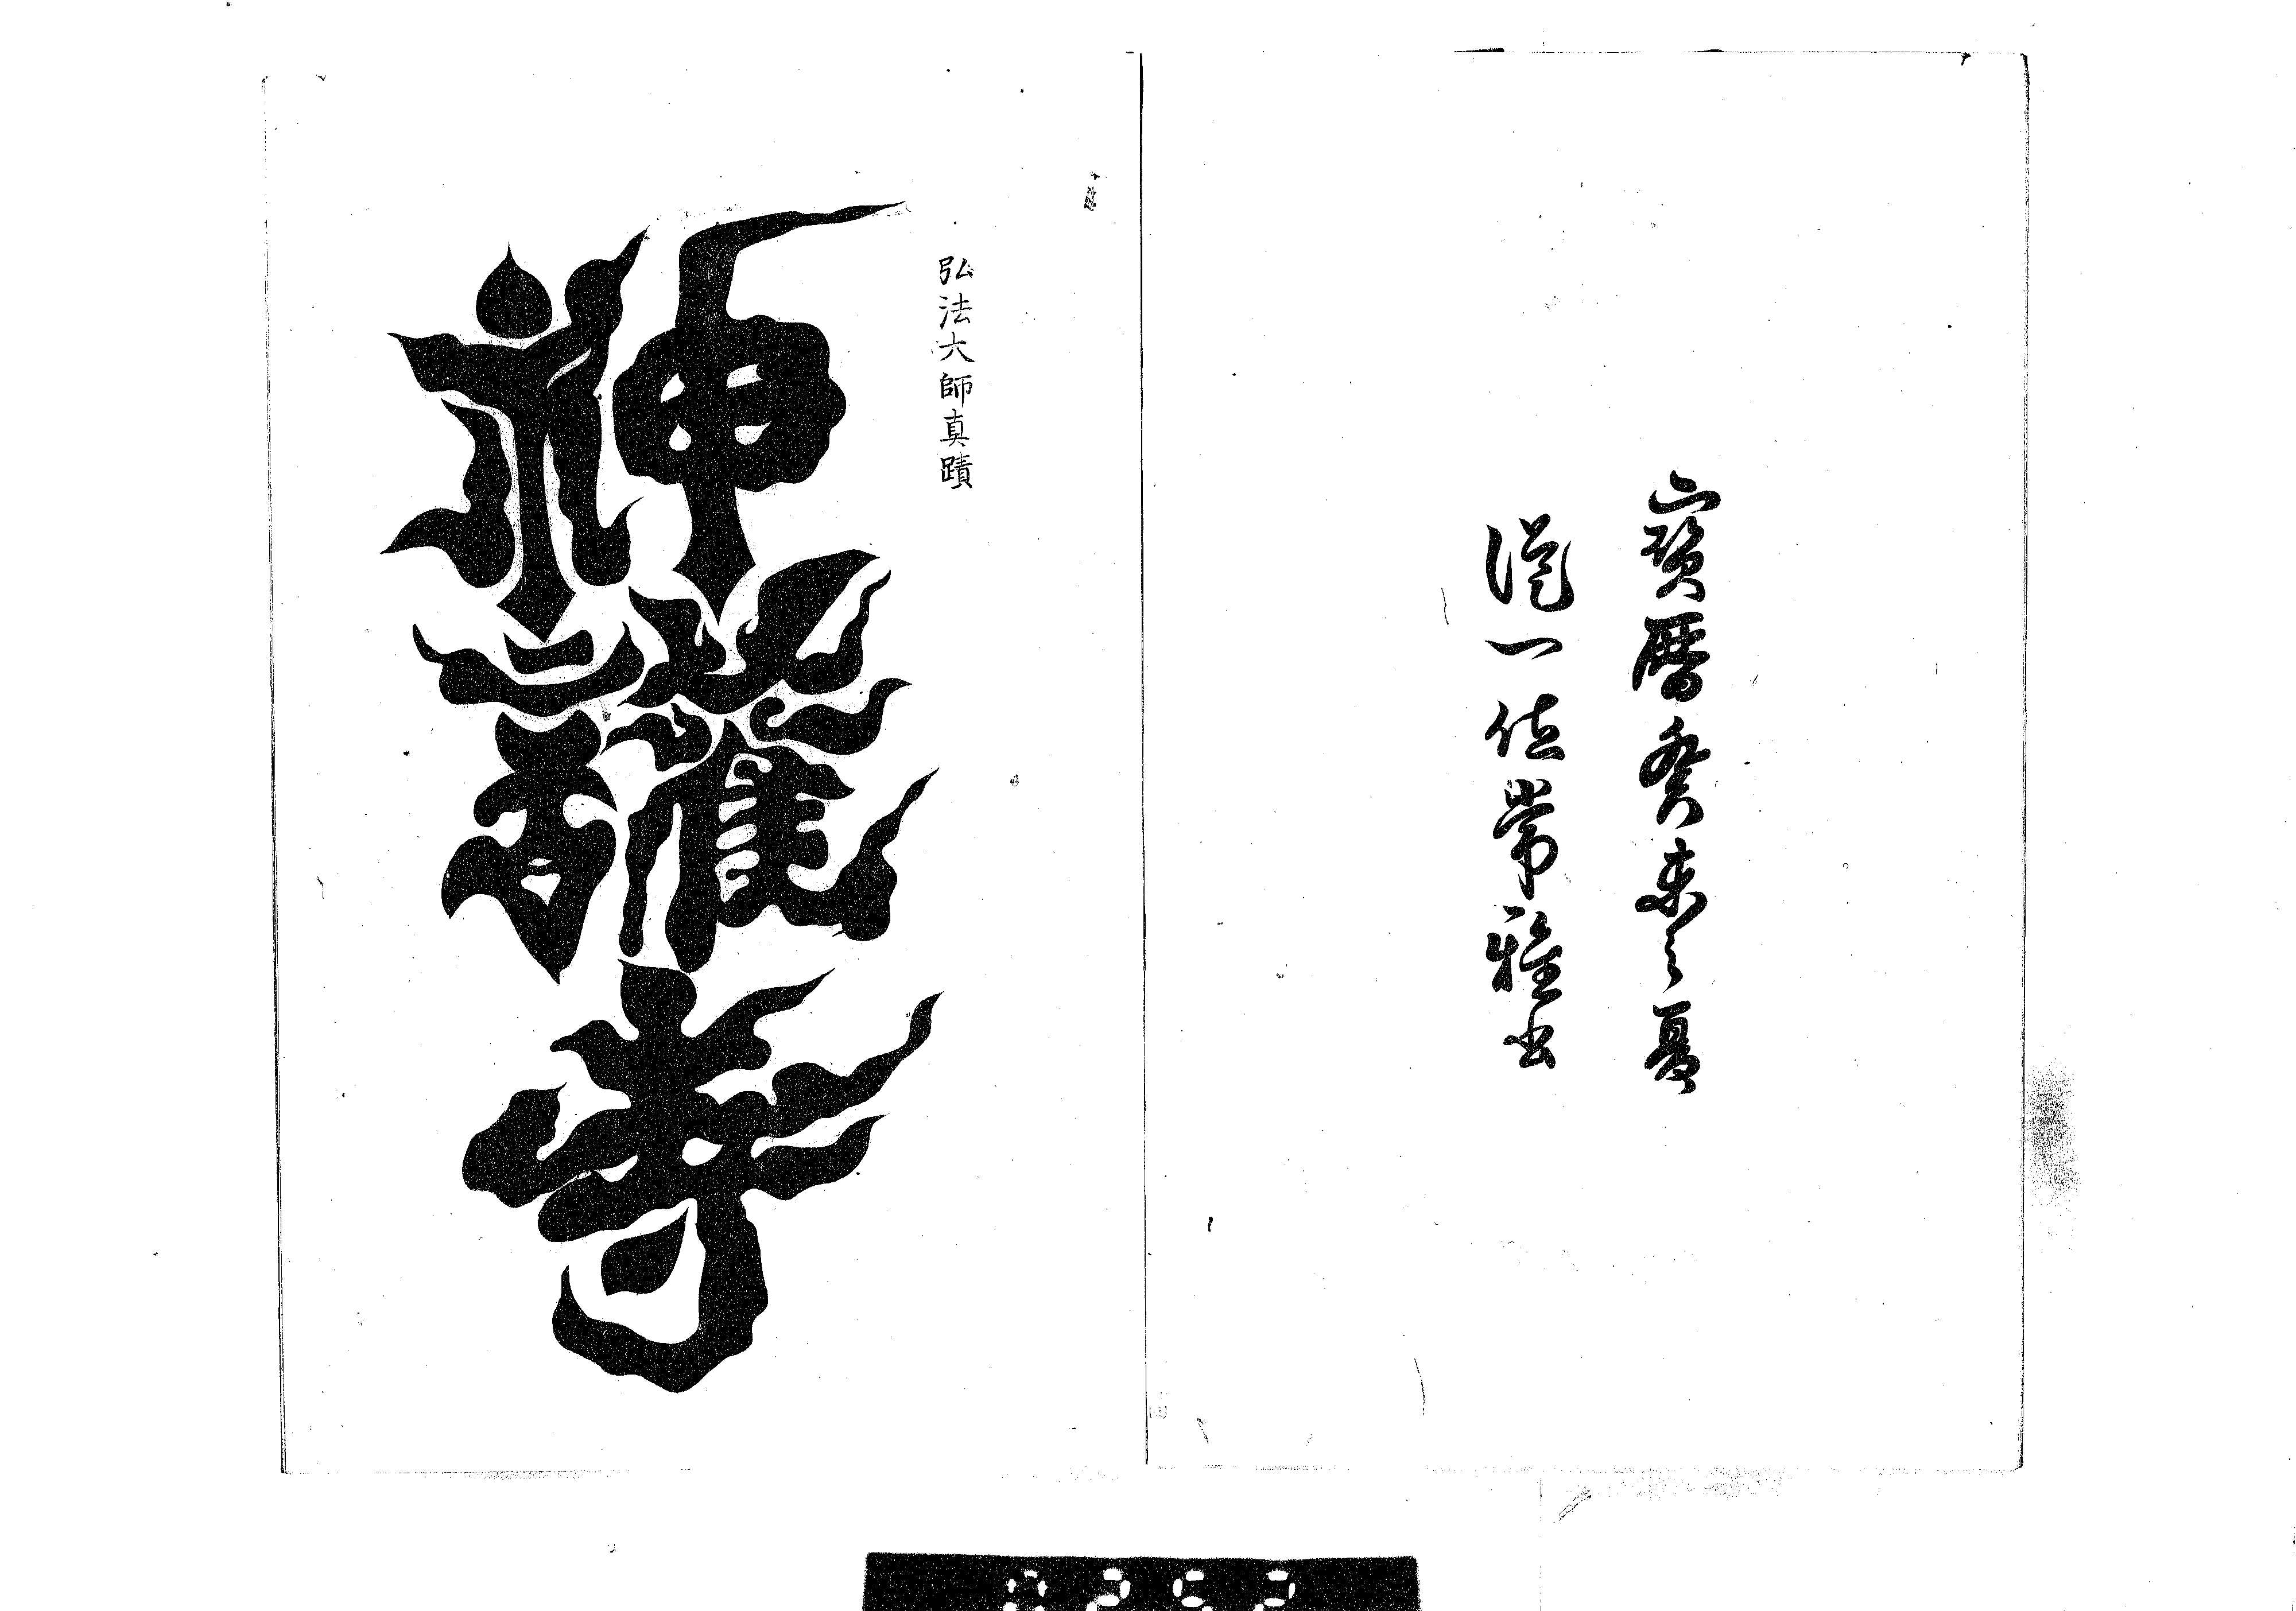 寶曆癸未之夏
從一位常雅書
弘法大師真蹟
神護寺